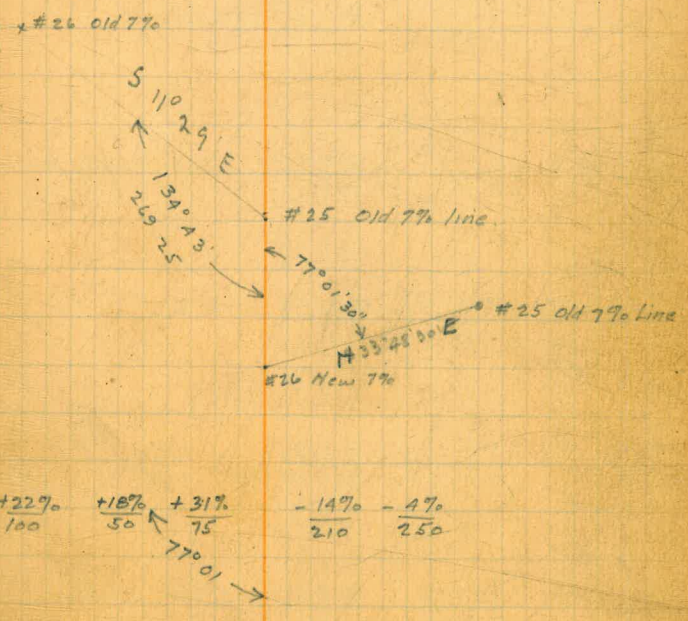 #26 Old 7%
S 11° 29' E
134° 43'
269 25
#25 Old 7% line
77° 01' 30"
#25 Old 7% Line
N 33° 48' 30 E
#26 New 7%
+22% +18% +31% - 14% - 4%
100 50 75 210 250
77° 01